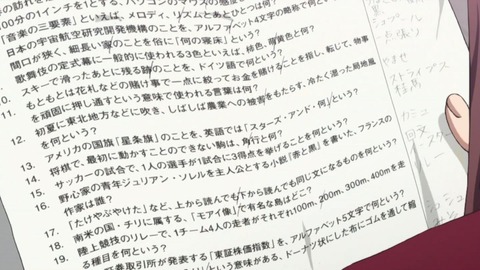 100分の1インチを1とする、パソコンのマウスの感度
「音楽の三要素」といえば、メロディ、リズムとあとひとつは何?
日本の宇宙航空研究開発機構のことを、アルファベット4文字の略称で何という?
間口が狭く、細長い家のことを俗に「何の寝床」という?
歌舞伎の定式幕に一般的に使われる3色といえば、柿色、萌黄色と何?
10. スキーで滑ったあとに残る跡のことを、ドイツ語で何という?
11. もともとは花札などの賭け事で一点に絞ってお金を賭けることを指し、転じて、物事
を頑固に押し通すという意味で使われる言葉は何?
12. 初夏に東北地方などに吹き、しばしば農業への被害をもたらす、冷たく湿った局地風
を何という?
13. アメリカの国旗「星条旗」のことを、英語では「スターズ・アンド・何」という?
14. 将棋で、最初に動かすことのできない駒は、角行と何?
15. サッカーの試合で、1人の選手が1試合に3得点を挙げることを何という?
16. 野心家の青年ジュリアン・ソレルを主人公とする小説『赤と黒』を書いた、フランスの
作家は誰?
17. 「たけやぶやけた」など、上から読んでも下から読んでも同じ文になるものを何という?
18. 南米の国・チリに属する、「モアイ像」で有名な島はどこ?
19. 陸上競技のリレーで、1チーム4人の走者がそれぞれ100m、200m、300m、400mを走
る種目を何という?
証券取引所が発表する「東証株価指数」を、アルファベット5文字で何という?
という意味がある、ドーナツ状にした布にゴムを通して縮
ストライプス
桂馬
回文